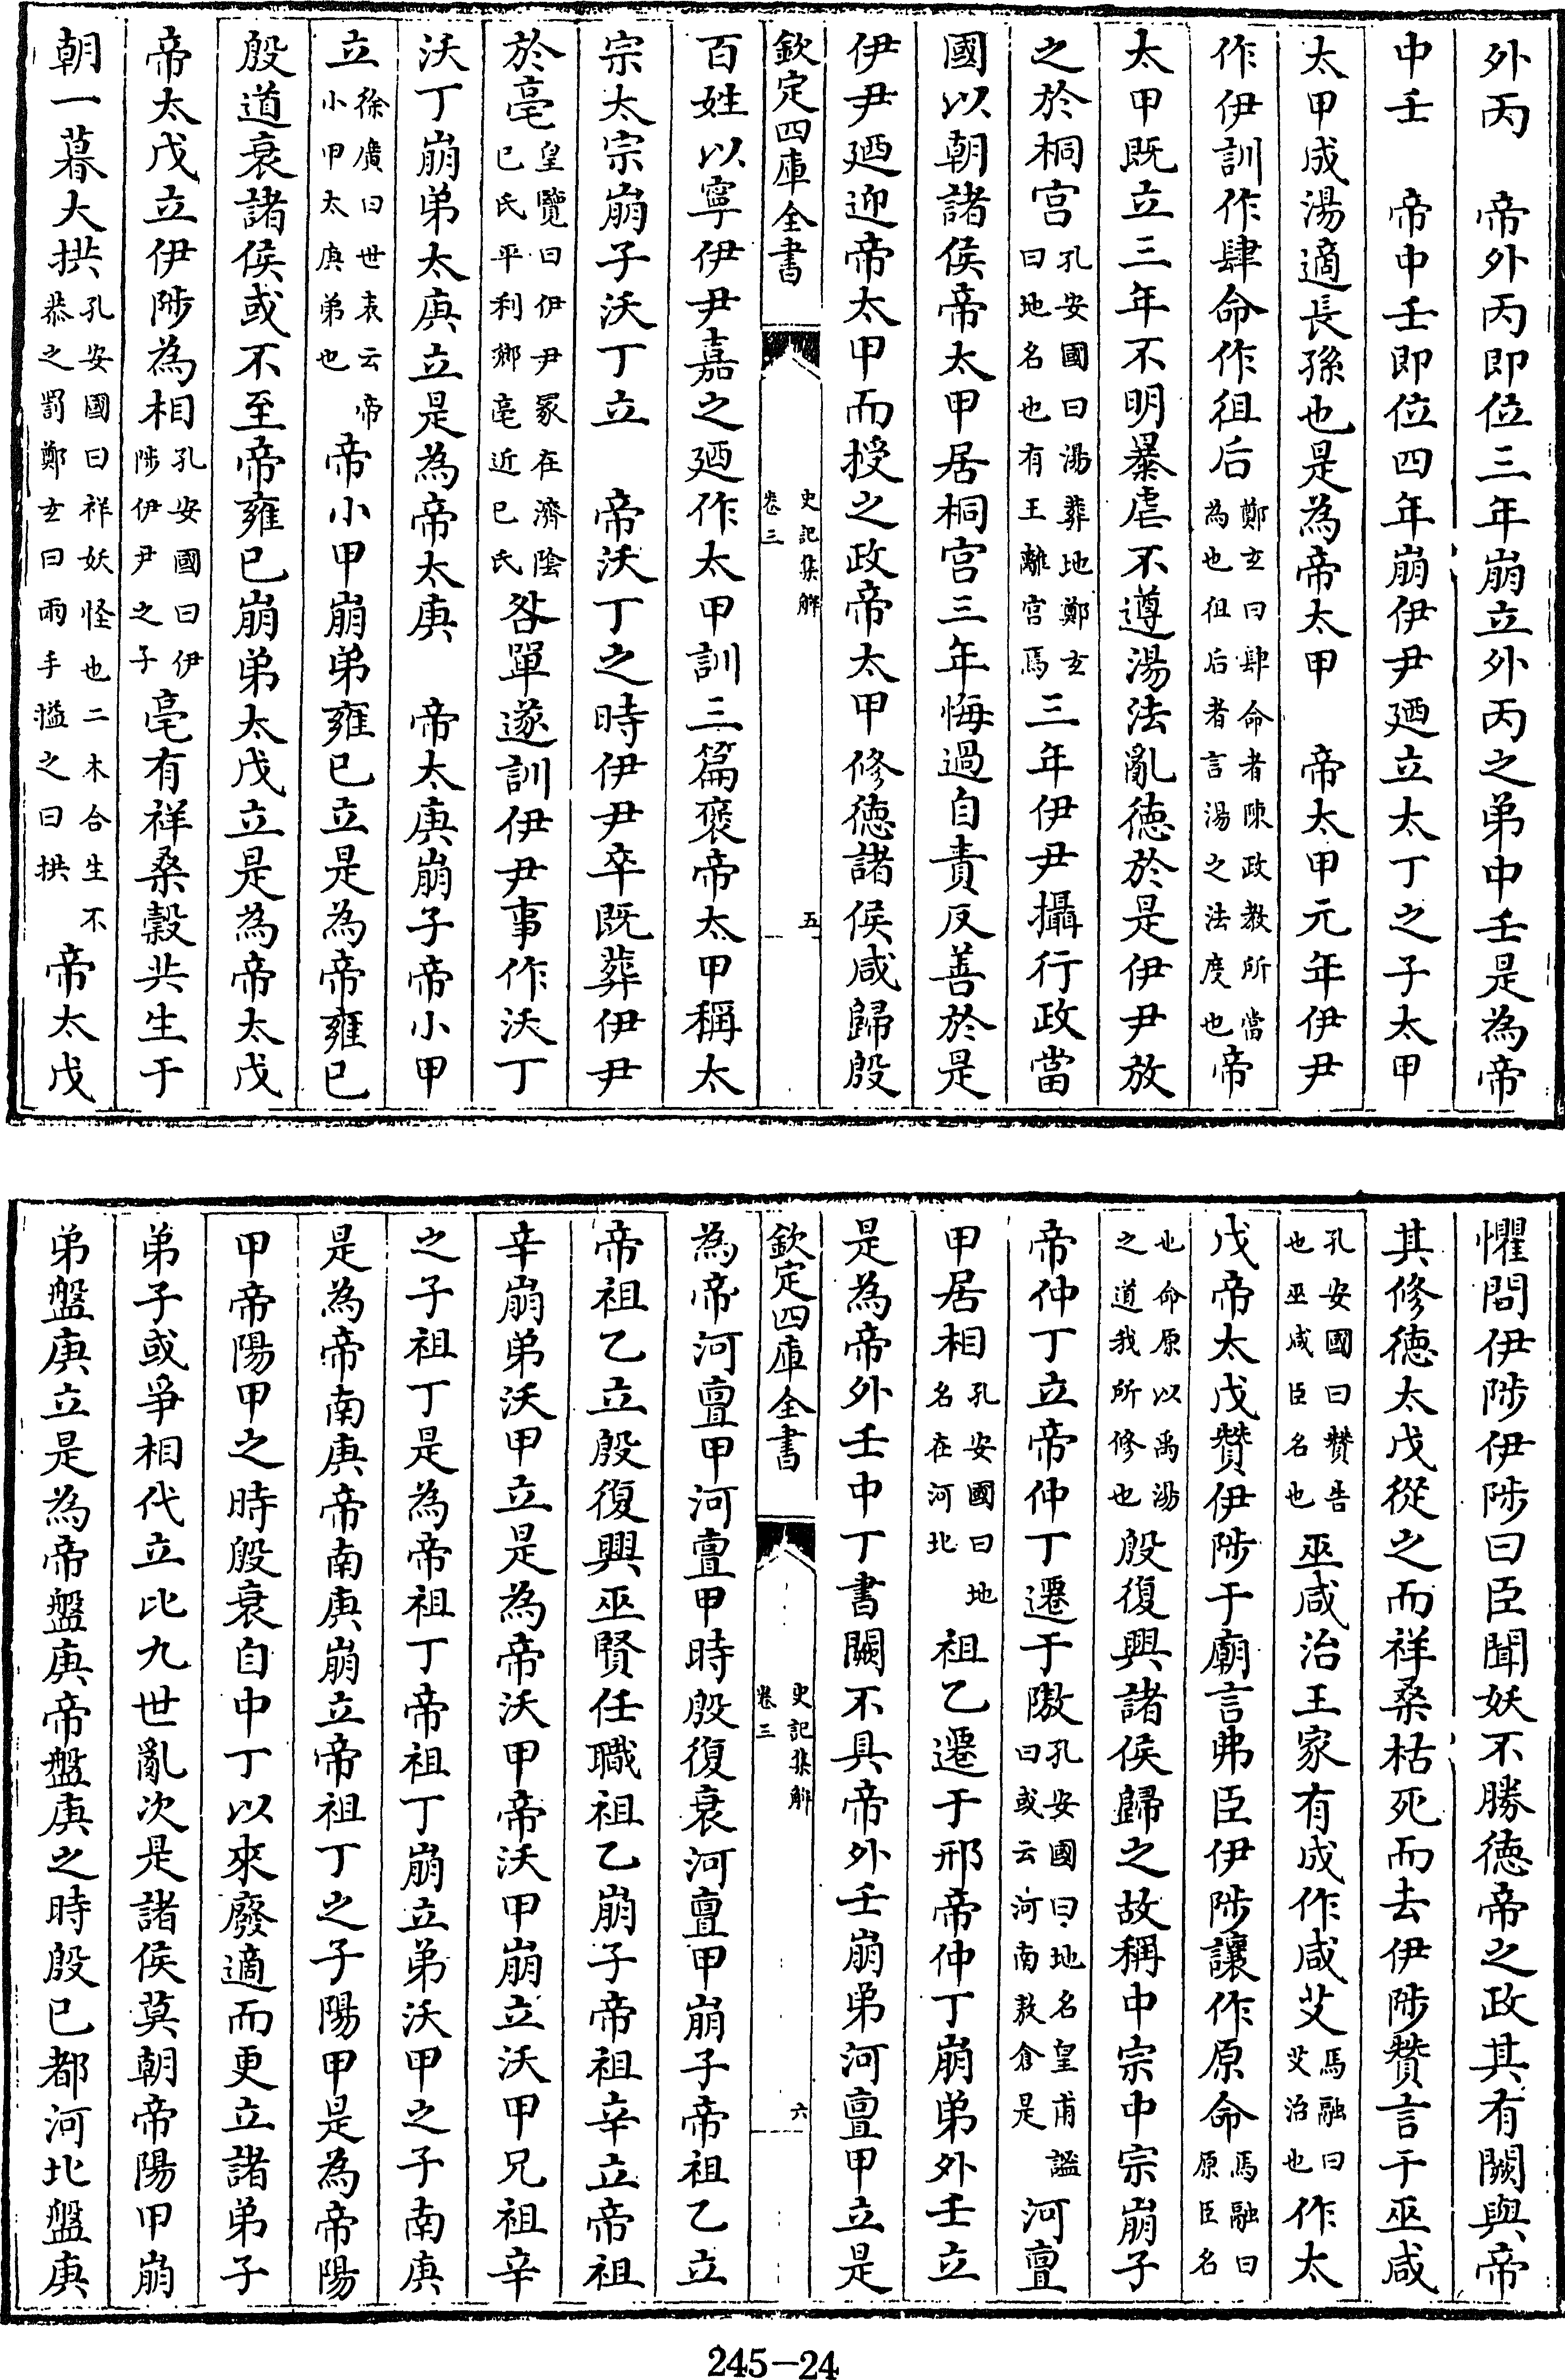 外丙　帝外丙即位三年崩立外丙之弟中壬是為帝
中壬　帝中壬即位四年崩伊尹廼立太丁之子太甲
太甲成湯適長孫也是為帝太甲　帝太甲元年伊尹
作伊訓作肆命作徂后鄭玄曰肆命者陳政教所當為也徂后者言湯之法度也帝
太甲既立三年不明暴虐不遵湯法亂徳於是伊尹放
之於桐宮孔安國曰湯葬地鄭玄曰地名也有王離宮焉三年伊尹攝行政當
國以朝諸侯帝太甲居桐宮三年悔過自責反善於是
伊尹廼迎帝太甲而授之政帝太甲修徳諸侯咸歸殷
欽定四庫全書　史記集解卷三　五
百姓以寧伊尹嘉之廼作太甲訓三篇褒帝太甲稱太
宗太宗崩子沃丁立　帝沃丁之時伊尹卒既葬伊尹
於亳皇覽曰伊尹冢在濟陰已氏平利鄉亳近已氏咎單遂訓伊尹事作沃丁
沃丁崩弟太庚立是為帝太庚　帝太庚崩子帝小甲
立徐廣曰世表云帝小甲太庚弟也帝小甲崩弟雍已立是為帝雍已
殷道衰諸侯或不至帝雍已崩弟太戊立是為帝太戊
帝太戊立伊陟為相孔安國曰伊陟伊尹之子亳有祥桑榖共生于
朝一暮大拱孔安國曰祥妖怪也二木合生不恭之罰鄭玄曰兩手搤之曰拱帝太戊
懼問伊陟伊陟曰臣聞妖不勝徳帝之政其有闕與帝
其修徳太戊從之而祥桑枯死而去伊陟贊言于巫咸
孔安國曰贊告也巫咸臣名也巫咸治王家有成作咸艾馬融曰艾治也作太
戊帝太戊贊伊陟于廟言弗臣伊陟讓作原命馬融曰原臣名
也命原以禹湯之道我所修也殷復興諸侯歸之故稱中宗中宗崩子
帝仲丁立帝仲丁遷于隞孔安國曰地名皇甫謐曰或云河南敖倉是河亶
甲居相孔安國曰地名在河北祖乙遷于邢帝仲丁崩弟外壬立
是為帝外壬中丁書闕不具帝外壬崩弟河亶甲立是
欽定四庫全書　史記集解卷三　六
為帝河亶甲河亶甲時殷復衰河亶甲崩子帝祖乙立
帝祖乙立殷復興巫賢任職祖乙崩子帝祖辛立帝祖
辛崩弟沃甲立是為帝沃甲帝沃甲崩立沃甲兄祖辛
之子祖丁是為帝祖丁帝祖丁崩立弟沃甲之子南庚
是為帝南庚帝南庚崩立帝祖丁之子陽甲是為帝陽
甲帝陽甲之時殷衰自中丁以來廢適而更立諸弟子
弟子或爭相代立比九世亂次是諸侯莫朝帝陽甲崩
弟盤庚立是為帝盤庚帝盤庚之時殷已都河北盤庚
245-24